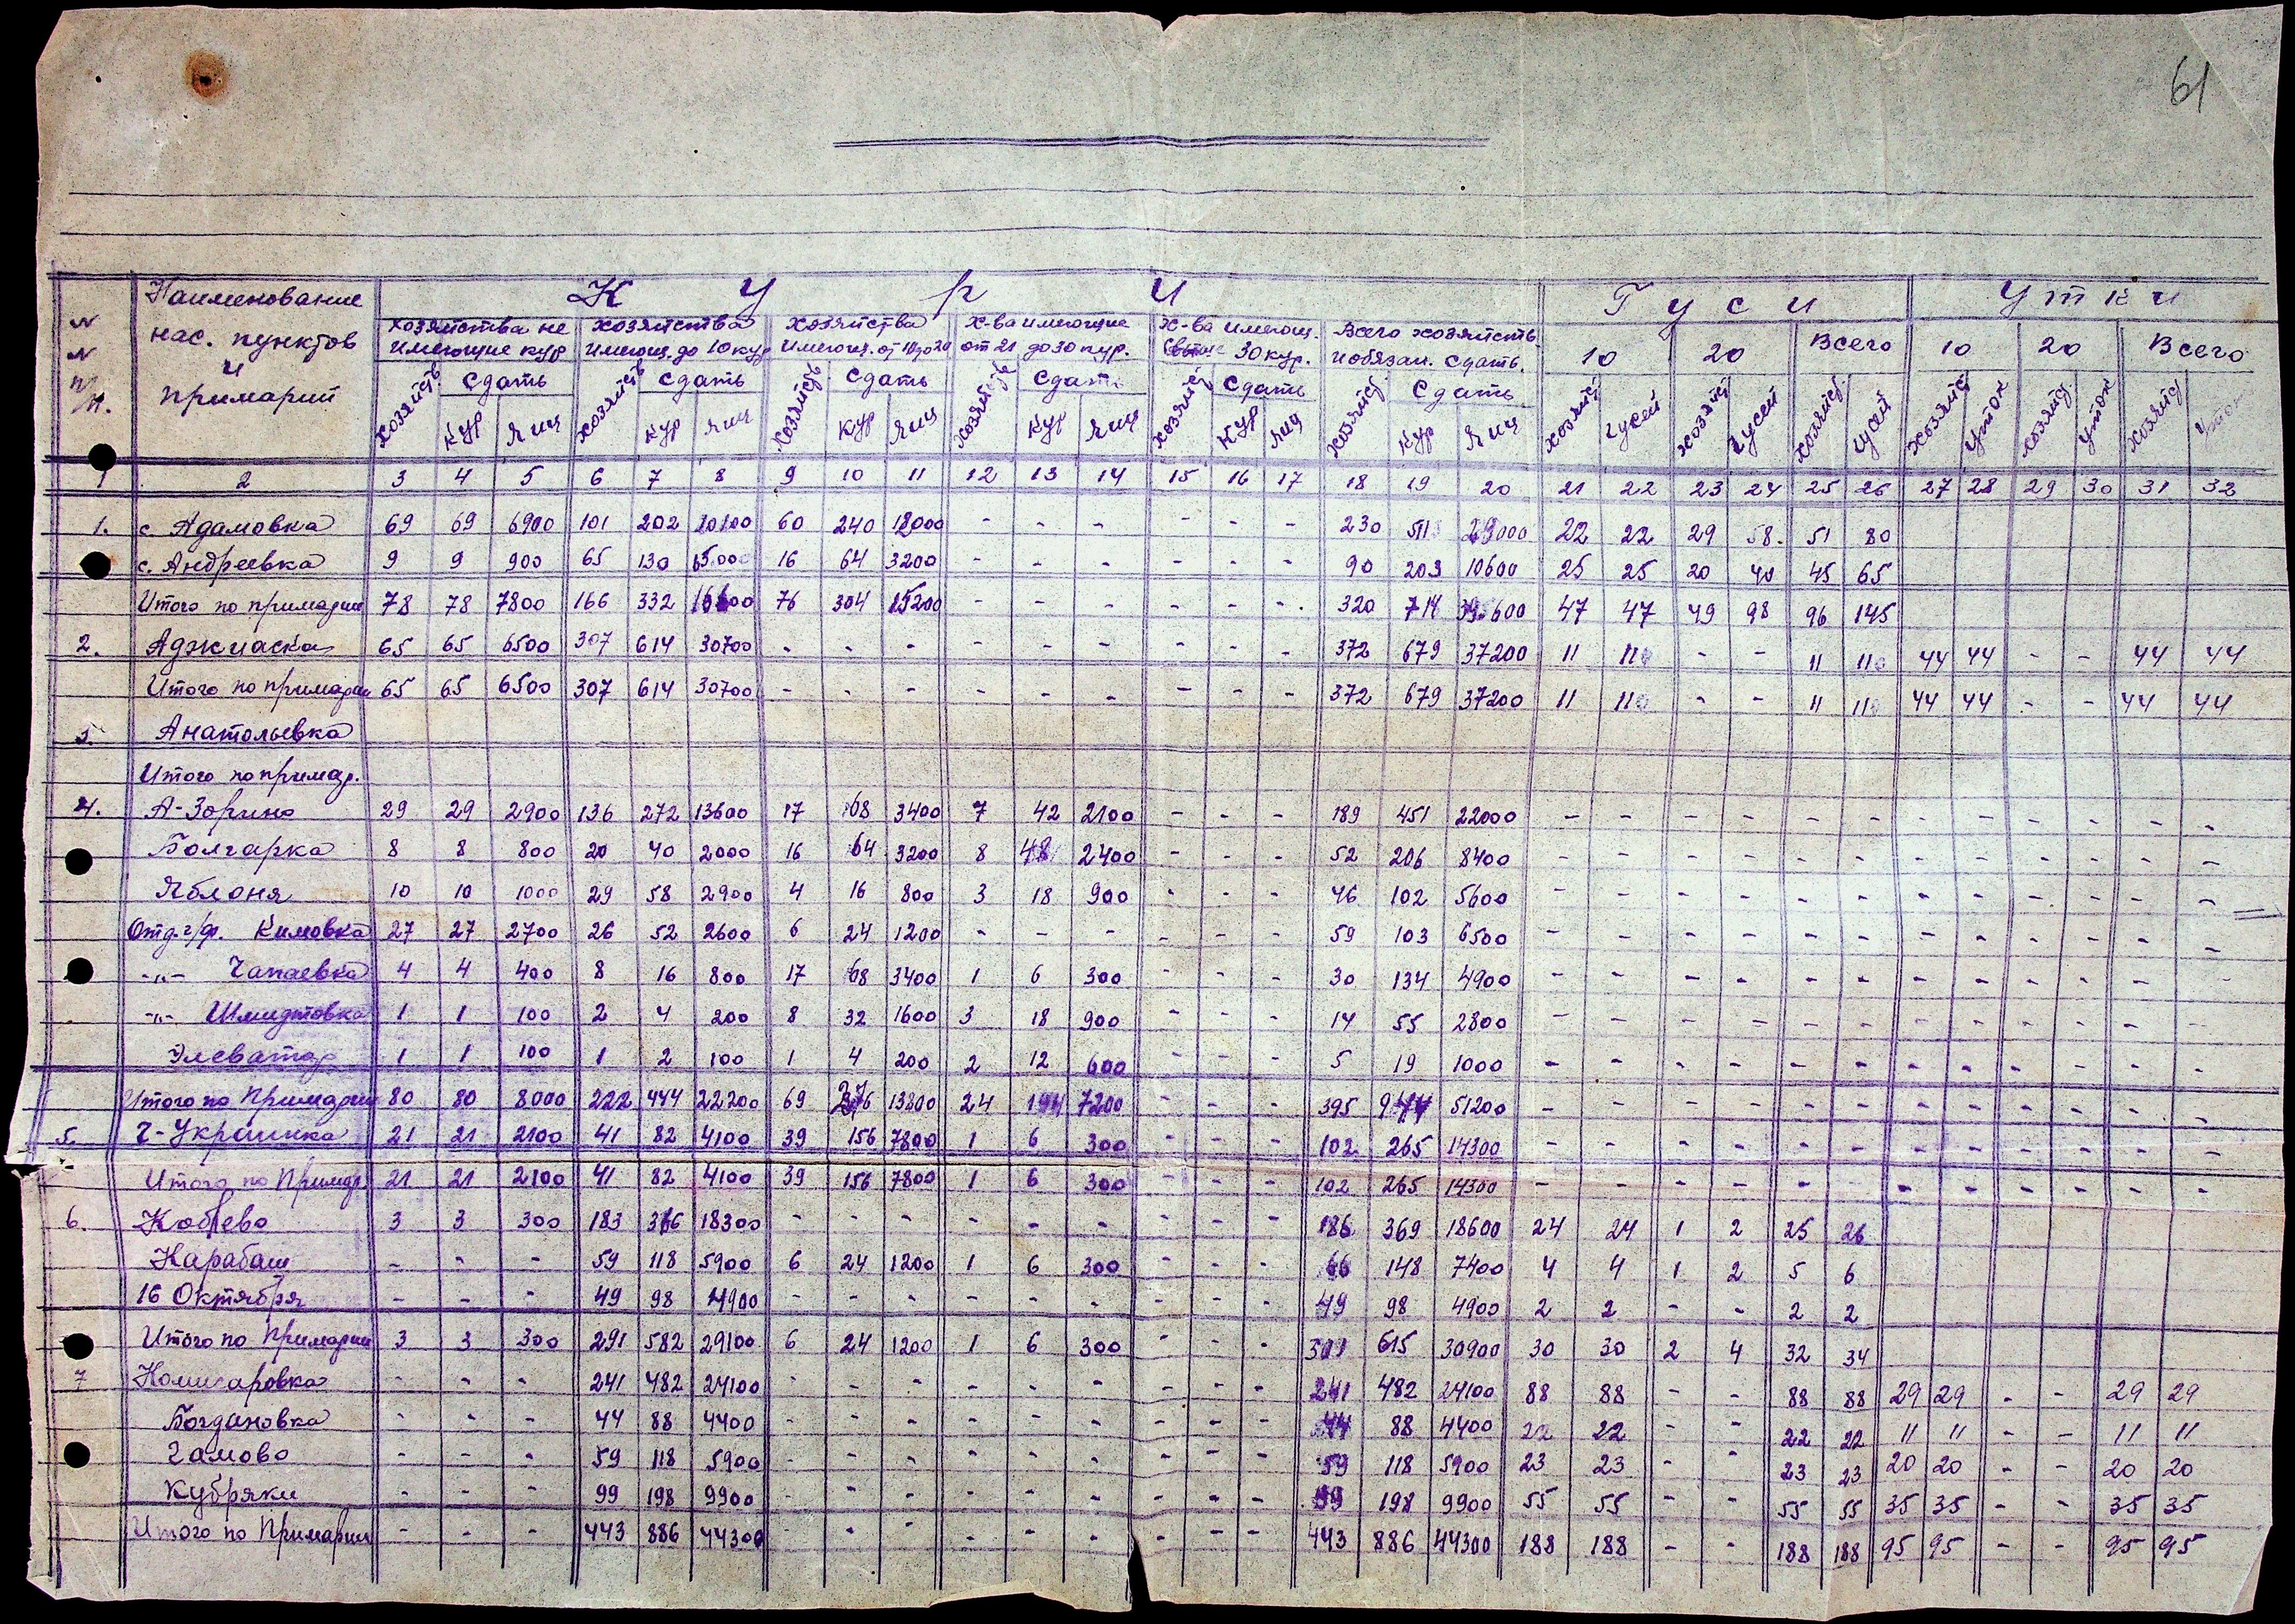 61
Куры Гуси Утки
N N п/п. Наименование нас. пунктов и примарий
Хозяйства не имеющие кур Хозяйства имеющ. до 10 кур Хозяйства имеющ. от 10 до 20 Х-ва имеющие от 21 до 30 кур. Х-ва имеющ. свыше 30 кур. Всего хозяйств и обязан. сдать. 10 20 Всего 10 20 Всего
хозяйств сдать кур яиц хозяйств сдать кур яиц хозяйств сдать кур яиц хозяйств сдать кур яиц хозяйств сдать кур яиц хозяйств сдать кур яиц хозяйств гусей хозяйств гусей хозяйств гусей хозяйств уток хозяйств уток хозяйств уток
1 2 3 4 5 6 7 8 9 10 11 12 13 14 15 16 17 18 19 20 21 22 23 24 25 26 27 28 29 30 31 32
1. с. Адамовка 69 69 6900 101 202 10100 60 240 12000 - - - - - - 230 511 29000 22 22 29 58. 51 80
с. Андреевка 9 9 900 65 130 6500 16 64 3200 - - - - - - 90 203 10600 25 25 20 40 45 65
Итого по примарии 78 78 7800 166 332 16600 76 304 15200 - - - - - - 320 714 39600 47 47 49 98 96 145
2. Аджиаска 65 65 6500 307 614 30700 - - - - - - - - - 372 679 37200 11 11 - - 11 11 44 44 - - 44 44
Итого по примарии 65 65 6500 307 614 30700 - - - - - - - - - 372 679 37200 11 11 - - 11 11 44 44 - - 44 44
3. Анатольевка
Итого по примар.
4. А-Зорино 29 29 2900 136 272 13600 17 68 3400 7 42 2100 - - - 189 451 22000 - - - - - - - - - - - -
Болгарка 8 8 800 20 40 2000 16 64 3200 8 48 2400 - - - 52 206 8400 - - - - - - - - - - - -
Яблоня 10 10 1000 29 58 2900 4 16 800 3 18 900 - - - 46 102 5600 - - - - - - - - - - - -
Отд. г/ф. Кимовка 27 27 2700 26 52 2600 6 24 1200 - - - - - - 59 103 6500 - - - - - - - - - - - -
-"- Чапаевка 4 4 400 8 16 800 17 68 3400 1 6 300 - - - 30 134 4900 - - - - - - - - - - - -
-"- Шмидтовка 1 1 100 2 4 200 8 32 1600 3 18 900 - - - 14 55 2800 - - - - - - - - - - - -
Элеватор 1 1 100 1 2 100 1 4 200 2 12 600 - - - 5 19 1000 - - - - - - - - - - - -
Итого по Примарии 80 80 8000 222 444 22200 69 276 13800 24 144 7200 - - - 395 944 51200 - - - - - - - - - - - -
5. Ч-Украинка 21 21 2100 41 82 4100 39 156 7800 1 6 300 - - - 102 265 14300 - - - - - - - - - - - -
Итого по Примар. 21 21 2100 41 82 4100 39 156 7800 1 6 300 - - - 102 265 14300 - - - - - - - - - - - -
6. Коблево 3 3 300 183 366 18300 - - - - - - - - - 186 369 18600 24 24 1 2 25 26
Карабаш - - - 59 118 5900 6 24 1200 1 6 300 - - - 66 148 7400 4 4 1 2 5 6
16 Октября - - - 49 98 4900 - - - - - - - - - 49 98 4900 2 2 - - 2 2
Итого по Примарии 3 3 300 291 582 29100 6 24 1200 1 6 300 - - - 301 615 30900 30 30 2 4 32 34
7 Комисаровка - - - 241 482 24100 - - - - - - - - - 241 482 24100 88 88 - - 88 88 29 29 - - 29 29
Богдановка - - - 44 88 4400 - - - - - - - - - 44 88 4400 22 22 - - 22 22 11 11 - - 11 11
Чамово - - - 59 118 5900 - - - - - - - - - 59 118 5900 23 23 - - 23 23 20 20 - - 20 20
Кубряки - - - 99 198 9900 - - - - - - - - - 99 198 9900 55 55 - - 55 55 35 35 - - 35 35
Итого по Примарии - - - 443 886 44300 - - - - - - - - - 443 886 44300 188 188 - - 188 188 95 95 - - 95 95